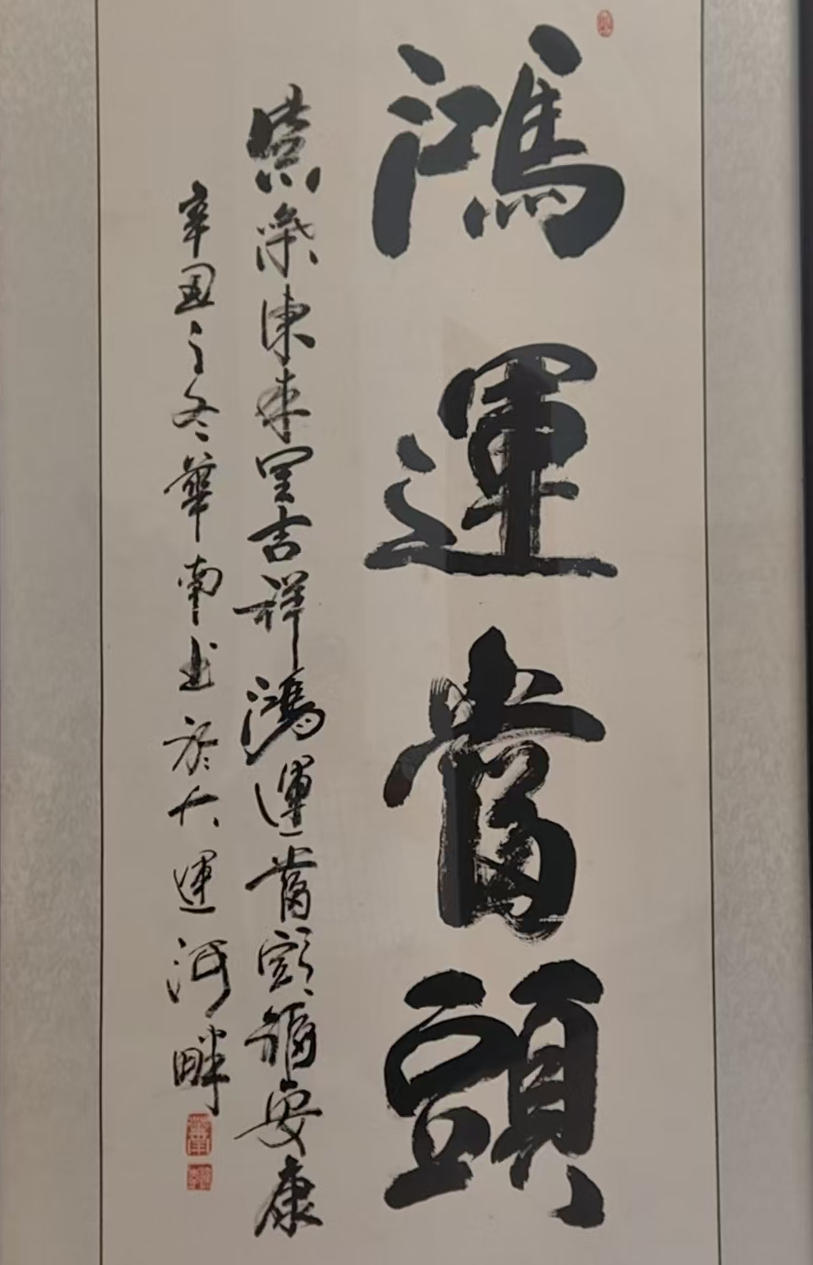 鴻運當頭
紫氣東來呈吉祥鴻運當頭福安康
辛丑之冬華南书於大運河畔